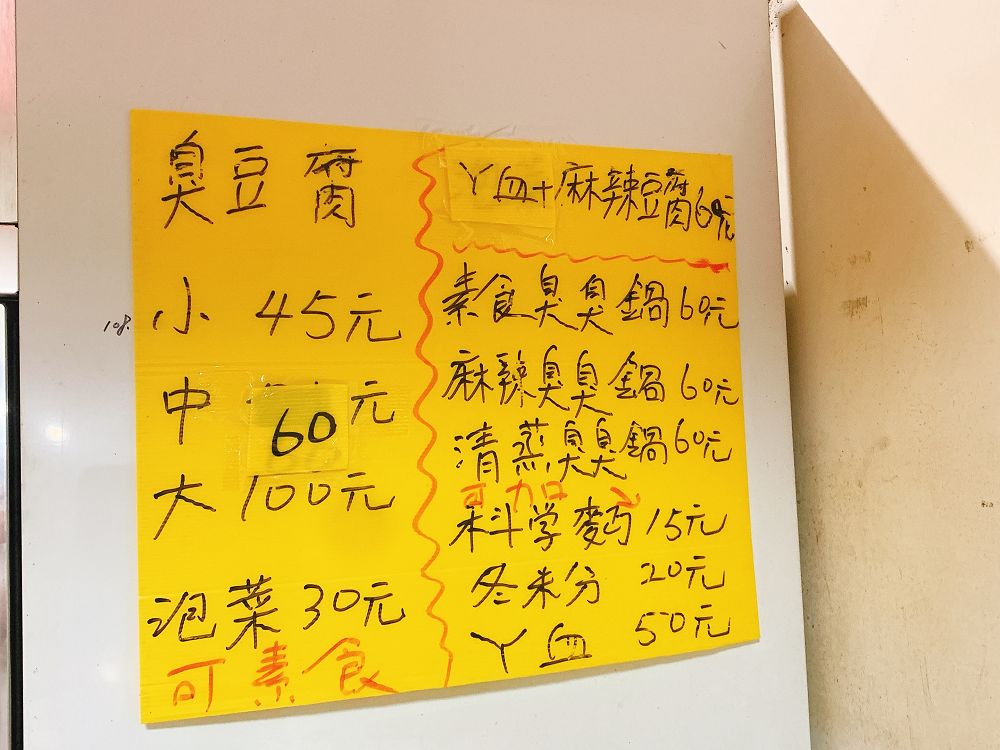 臭豆腐
小 45元
中 60元
大 100元
泡菜 30元
可素食
ㄚ血+麻辣豆腐60元
素食臭臭鍋60元
麻辣臭臭鍋 60元
清蒸臭臭鍋60元
可加
科学麪 15元
冬米分 20元
ㄚ血 50元
108.